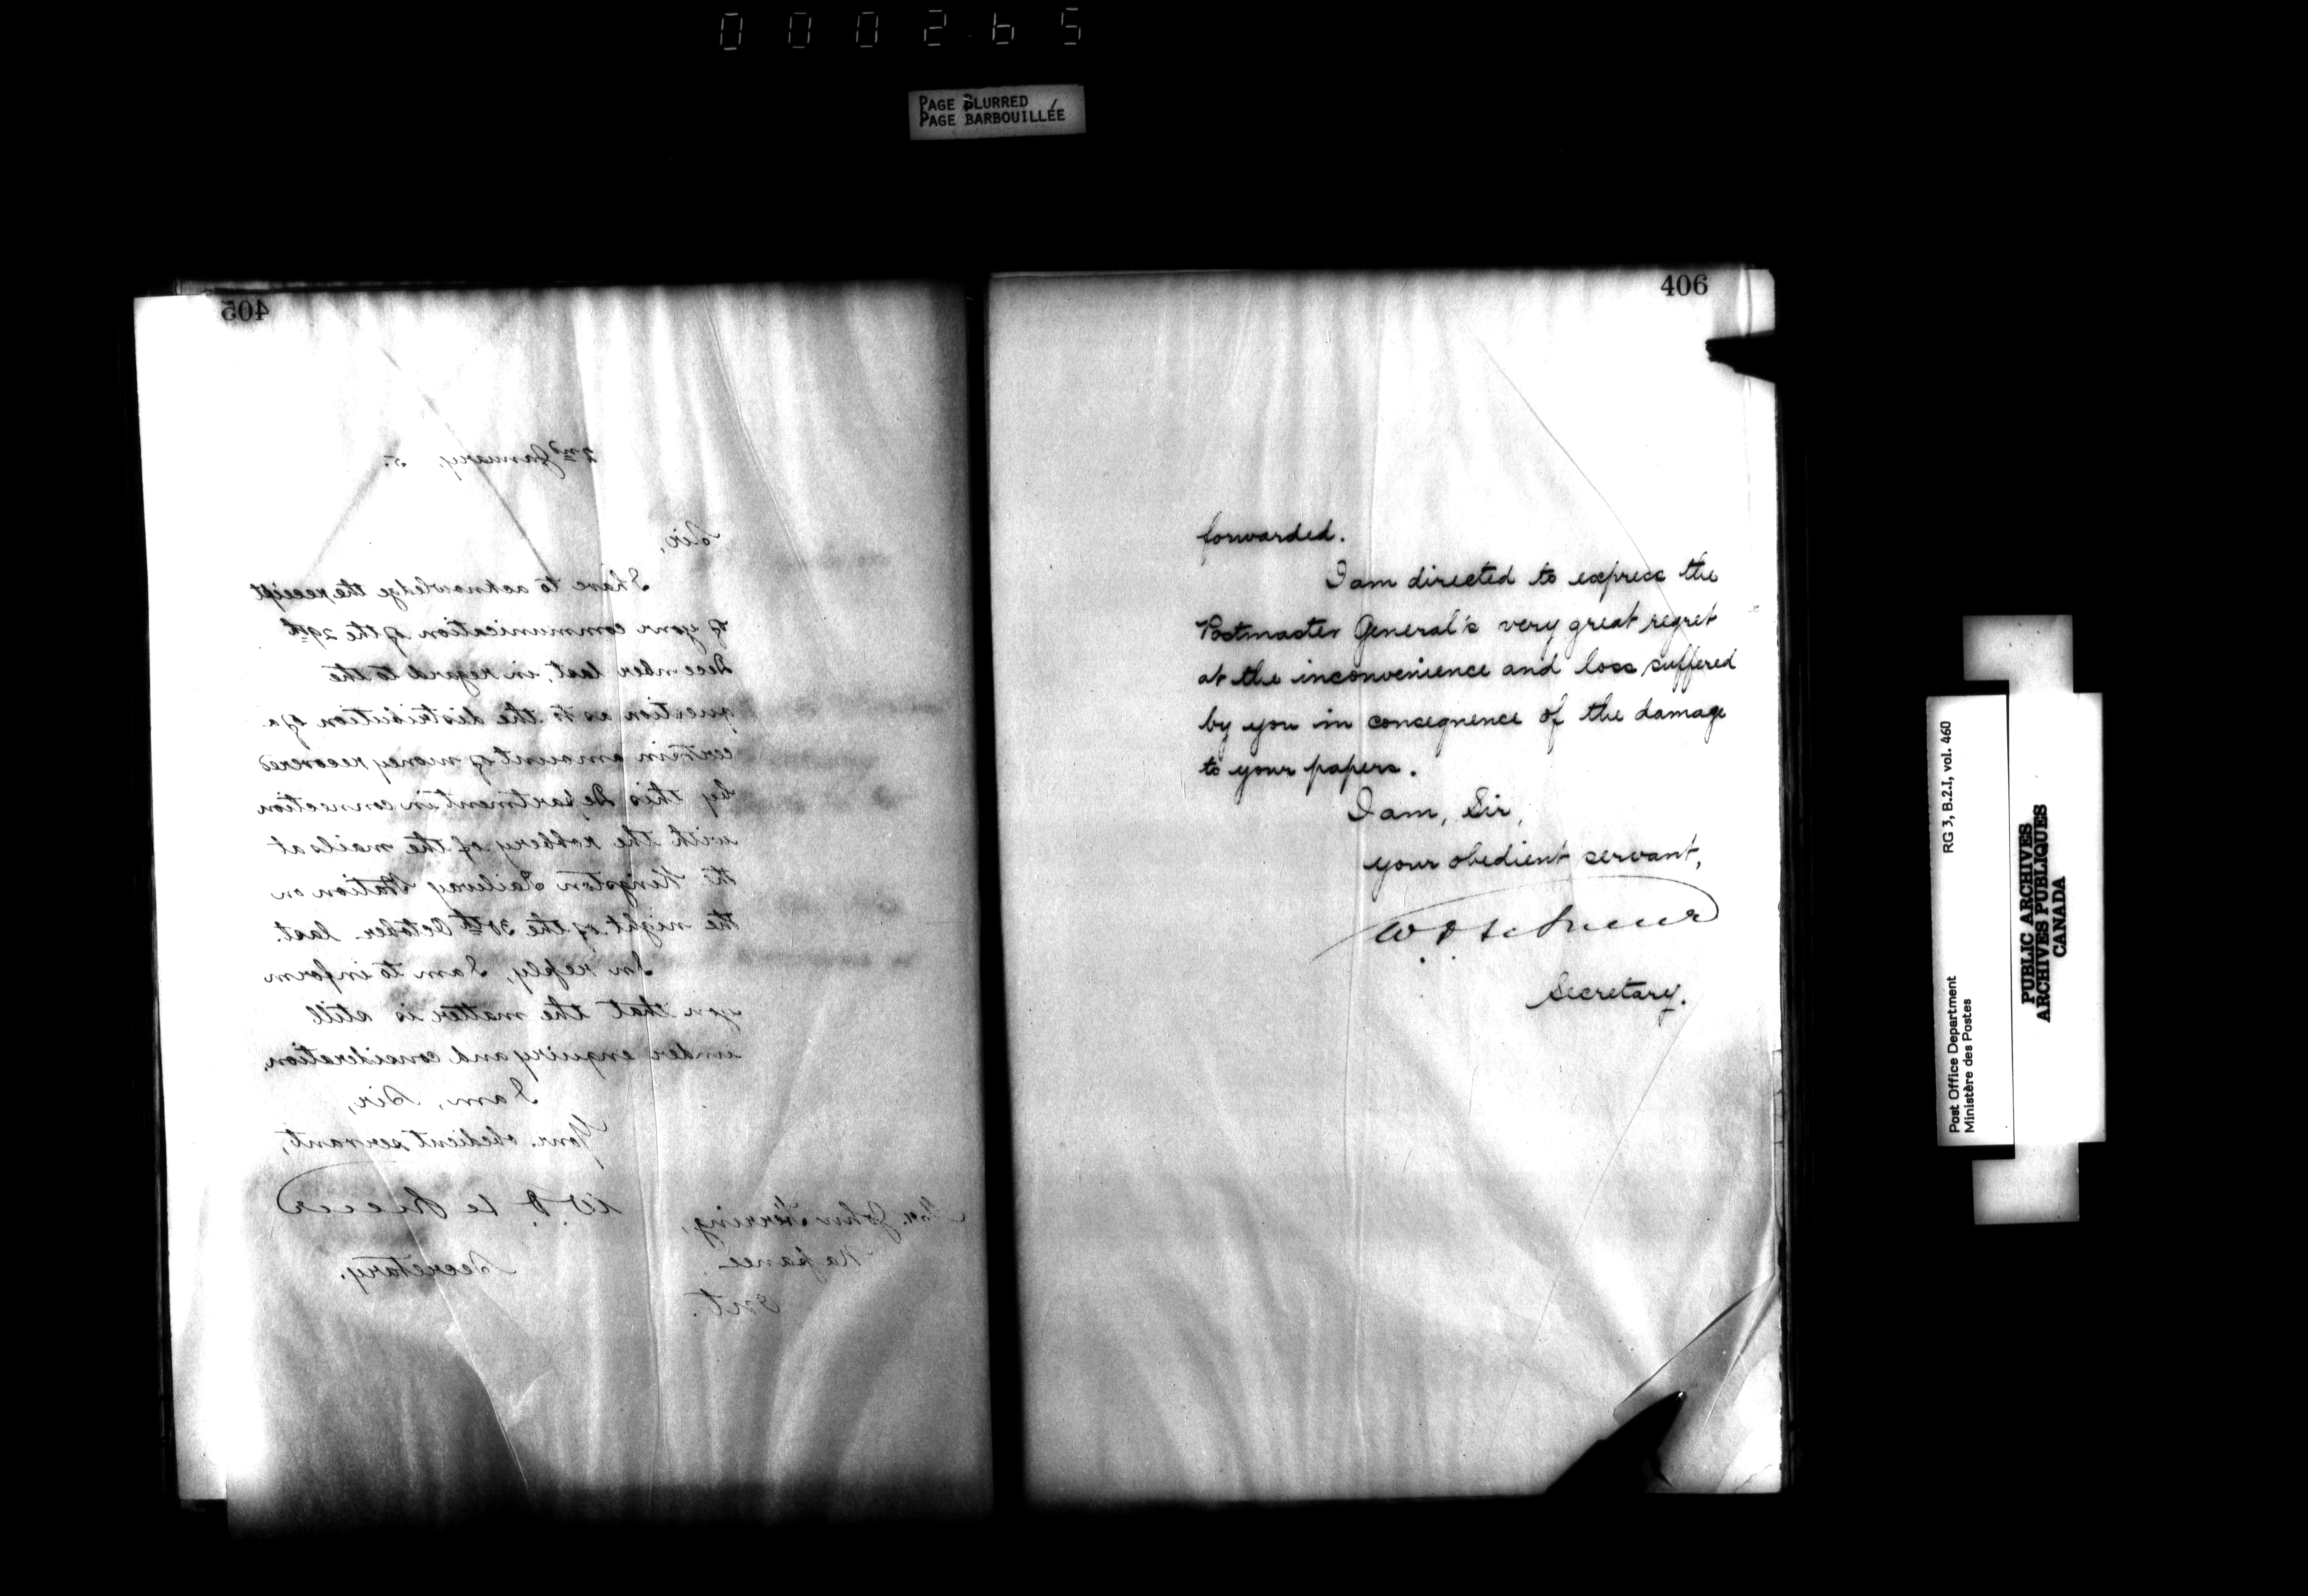 000265
PAGE BLURRED
PAGE BARBOUILLÉE
405
2nd January, 5.
Sir,
I have to acknowledge the receipt
of your communication of the 29th
December last, in regard to the
question as to the distribution of a
certain amount of money recovered
by this Department in connection
with the robbery of the mails at
the Kingston Railway Station on
the night of the 30th October last.
In reply, I am to inform
you that the matter is still
under enquiry and consideration.
I am, Sir,
Your obedient servant,
W. D. Le Sueur
Secretary.
Mr. John Herring,
Napanee
Ont.
406
forwarded.
I am directed to express the
Postmaster General's very great regret
at the inconvenience and loss suffered
by you in consequence of the damage
to your papers.
I am, Sir,
your obedient servant,
W. D. Le Sueur
Secretary.
Post Office Department
Ministère des Postes
RG 3, B.2.I, vol. 460
PUBLIC ARCHIVES
ARCHIVES PUBLIQUES
CANADA